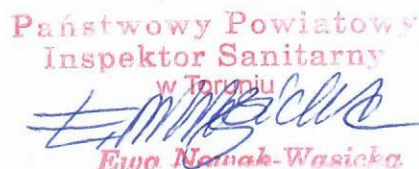 Państwowy Powiatowy
Inspektor Sanitarny
w Toruniu
Ewa Nowak-Wasicka